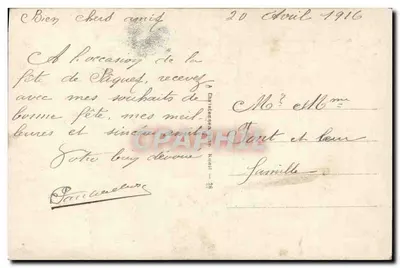 Bien chers amis
20 Avril 1916
A l'occasion de la
fête de Pâques, recevez
avec mes souhaits de
bonne fête, mes meil-
leures et sincères
Votre bien dévoué
Mr Mme
et leur
famille